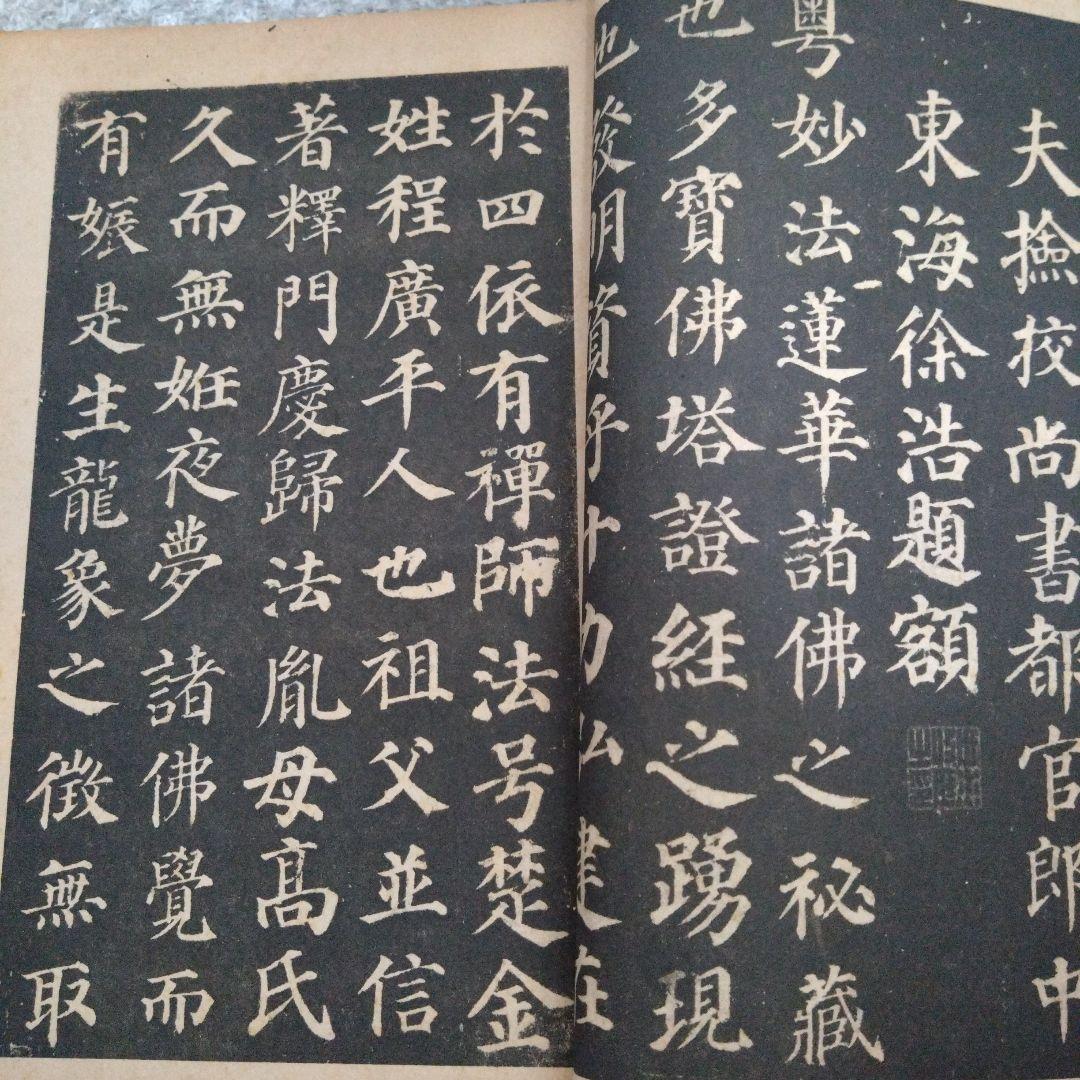 夫撿挍尚書都官郎中
東海徐浩題額
粵妙法蓮華諸佛之秘藏
也多寶佛塔證經之踴現
也發明資乎十力弘建在
於四依有禪師法号楚金
姓程廣平人也祖父並信
著釋門慶歸法胤母高氏
久而無姙夜夢諸佛覺而
有娠是生龍象之徵無取